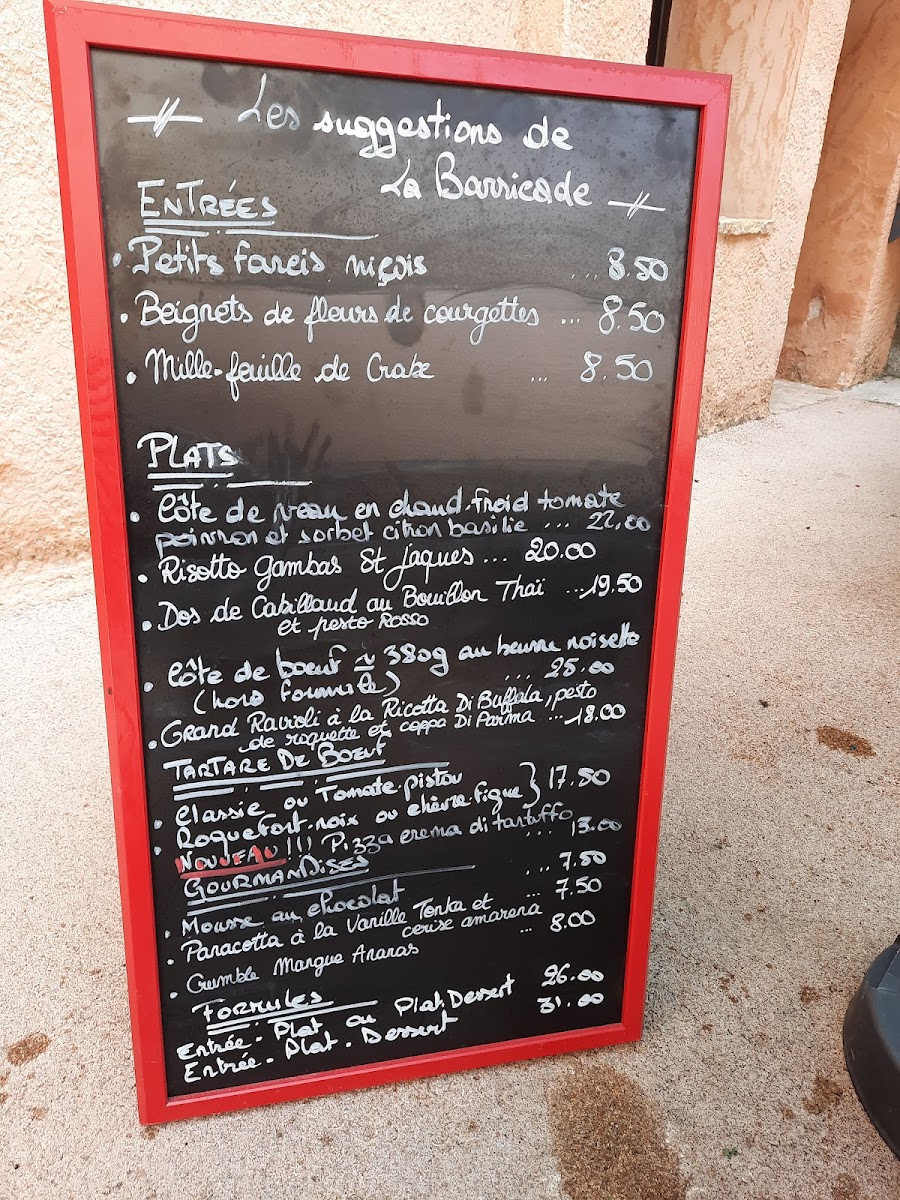 Les suggestions de
La Barricade
ENTRÉES
. Petits farcis niçois ... 8.50
. Beignets de fleurs de courgettes ... 8.50
. Mille-feuille de Crabe ... 8.50
PLATS
. Côte de veau en chaud-froid tomate
poivron et sorbet citron basilic ... 22.00
. Risotto gambas St Jaques ... 20.00
. Dos de Cabillaud au Bouillon Thaï ... 19.50
et pesto Rosso
. Côte de boeuf ~ 380g au beurre noisette
(hors formule) ... 25.00
. Grand Ravioli à la Ricotta Di Buffala, pesto
de roquette et coppa Di Parma ... 18.00
TARTARE DE BOEUF
. Classic ou Tomate-pistou
. Roquefort-noix ou chèvre-figue } 17.50
NOUVEAU !!! Pizza crema di tartuffo ... 13.00
GOURMANDISES
. Mousse au chocolat ... 7.50
. Panacotta à la Vanille Tonka et ... 7.50
cerise amarena
. Crumble Mangue Ananas ... 8.00
FORMULES
Entrée - Plat ou Plat-Dessert 26.00
Entrée - Plat - Dessert 31.00